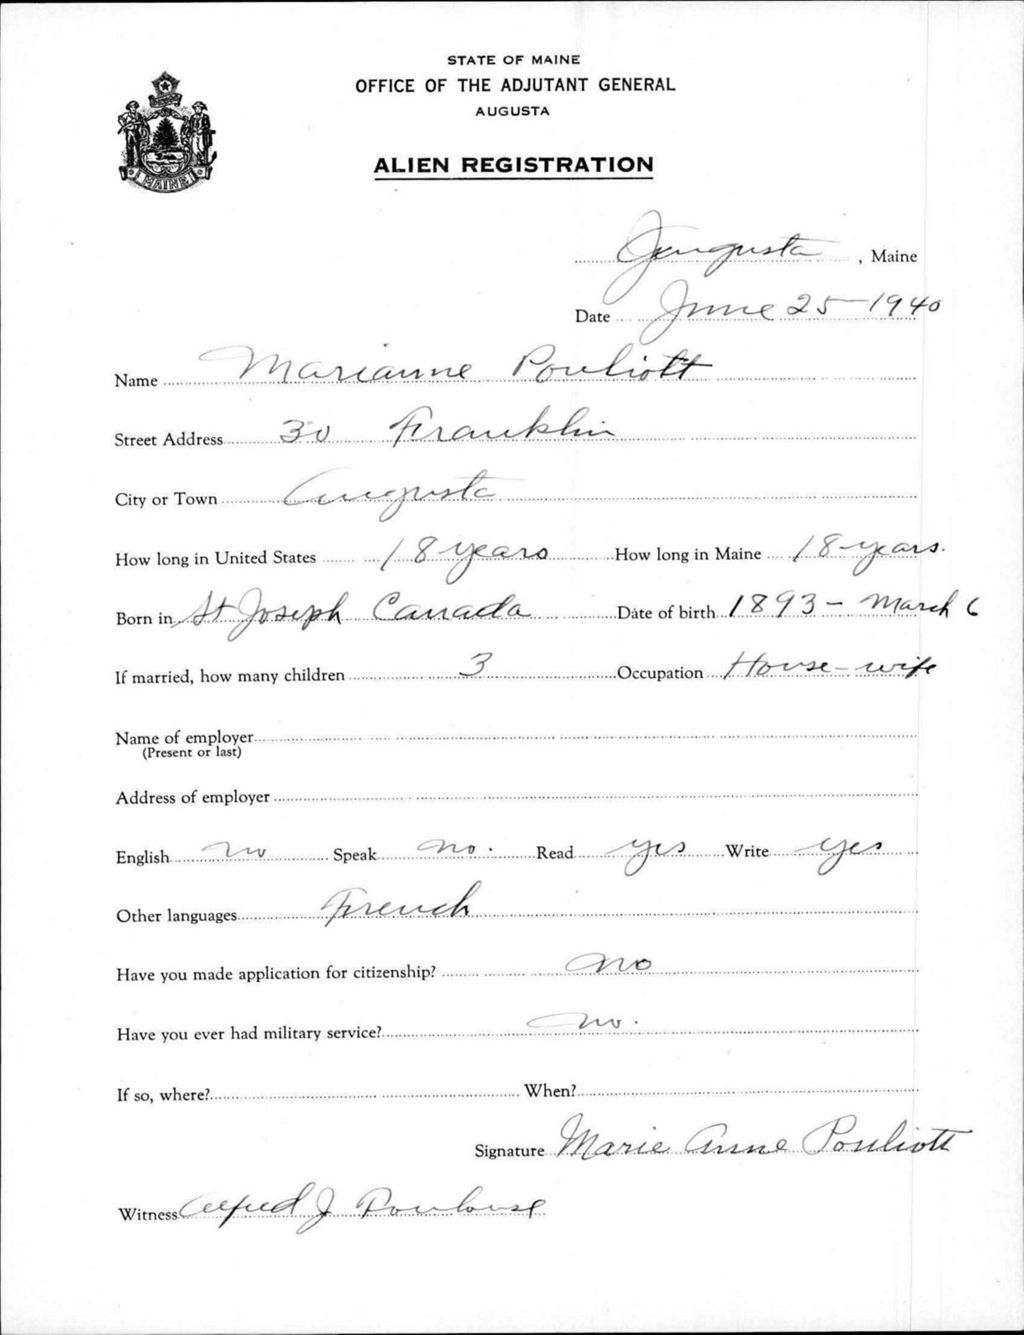 STATE OF MAINE
OFFICE OF THE ADJUTANT GENERAL
AUGUSTA
ALIEN REGISTRATION
MAINE
Augusta, Maine
Date June 25-1940
Name Marianne Pouliott
Street Address 30 Franklin
City or Town Augusta
How long in United States 18 years How long in Maine 18-years.
Born in St Joseph Canada Date of birth 1893- March 6
If married, how many children 3 Occupation House-wife
Name of employer
(Present or last)
Address of employer
English no Speak no. Read yes Write yes
Other languages French
Have you made application for citizenship? no
Have you ever had military service? no.
If so, where? When?
Signature Marie Anne Pouliott
Witness Alfred J